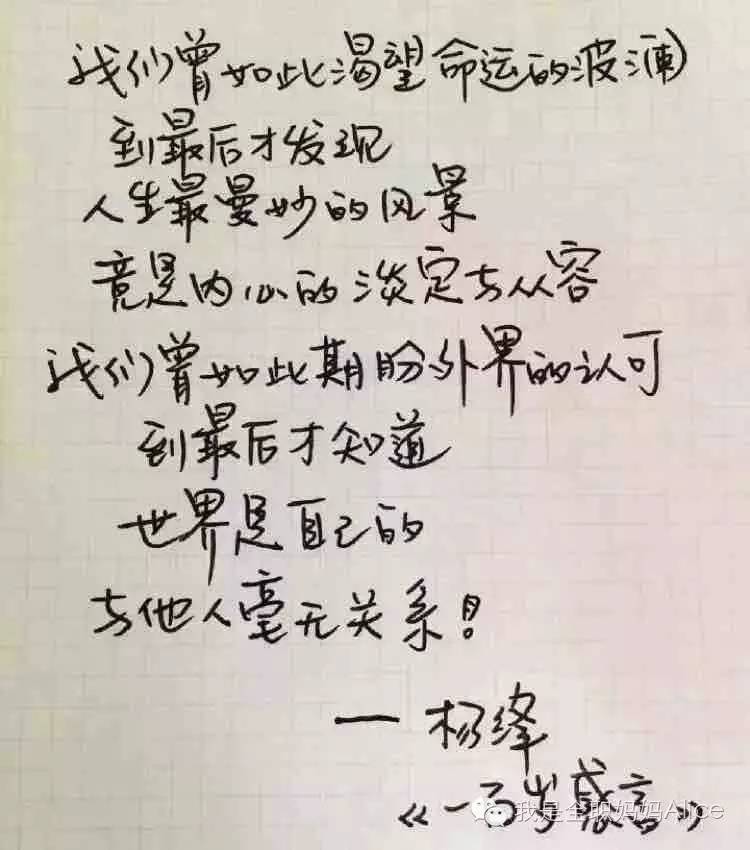 我们曾如此渴望命运的波澜
到最后才发现
人生最曼妙的风景
竟是内心的淡定与从容
我们曾如此期盼外界的认可
到最后才知道
世界是自己的
与他人毫无关系！
— 杨绛
《一百岁感言》
我是全职妈妈Alice